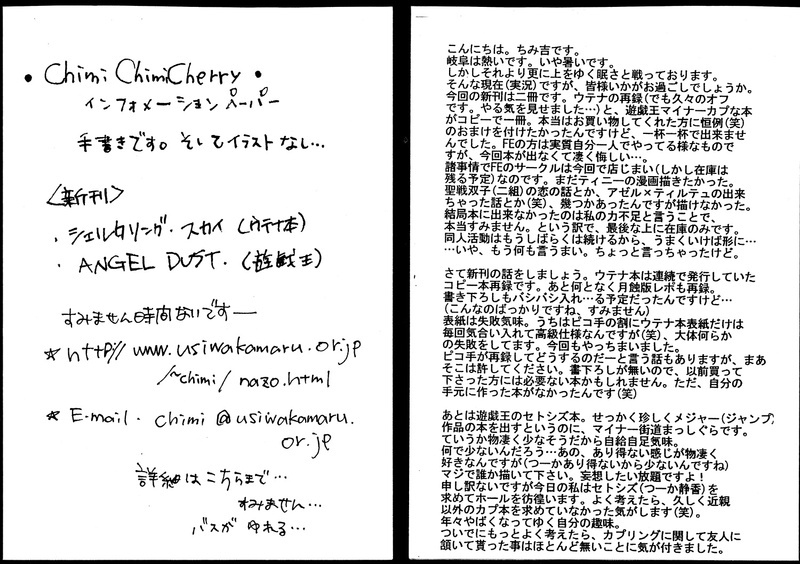 • Chimi ChimiCherry •
インフォメーションペーパー
手書きです。そしてイラストなし…
〈新刊〉
・シェルタリング・スカイ（ウテナ本）
・ANGEL DUST.（遊戯王）
すみません時間ないですー
☆ http// www.usiwakamaru.or.jp
/~chimi/ nazo.html
☆ E-mail. chimi@usiwakamaru.
or.jp
詳細はこちらまで…
すみません…
バスがゆれる…
こんにちは。ちみ吉です。
岐阜は熱いです。いや暑いです。
しかしそれより更に上をゆく眠さと戦っております。
そんな現在(実況)ですが、皆様いかがお過ごしでしょうか。
今回の新刊は二冊です。ウテナの再録(でも久々のオフ
です。やる気を見せました…)と、遊戯王マイナーカプな本
がコピーで一冊。本当はお買い物してくれた方に恒例(笑)
のおまけを付けたかったんですけど、一杯一杯で出来ませ
んでした。FEの方は実質自分一人でやってる様なもので
すが、今回本が出なくて凄く悔しい…。
諸事情でFEのサークルは今回で店じまい(しかし在庫は
残る予定)なのです。まだティニーの漫画描きたかった。
聖戦双子(二組)の恋の話とか、アゼル×ティルテュの出来
ちゃった話とか(笑)、幾つかあったんですが描けなかった。
結局本に出来なかったのは私の力不足と言うことで、
本当すみません。という訳で、最後な上に在庫のみです。
同人活動はもうしばらくは続けるから、うまくいけば形に…
…いや、もう何も言うまい。ちょっと言っちゃったけど。
さて新刊の話をしましょう。ウテナ本は連続で発行していた
コピー本再録です。あと何となく月蝕版レポも再録。
書き下ろしもバシバシ入れ…る予定だったんですけど…
(こんなのばっかりですね、すみません)
表紙は失敗気味。うちはピコ手の割にウテナ本表紙だけは
毎回気合い入れて高級仕様なんですが(笑)、大体何らか
の失敗をしてます。今回もやっちまいました。
ピコ手が再録してどうするのだーと言う話もありますが、まあ
そこは許してください。書下ろしが無いので、以前買って
下さった方には必要ない本かもしれません。ただ、自分の
手元に作った本がなかったんです(笑)
あとは遊戯王のセトシズ本。せっかく珍しくメジャー(ジャンプ)
作品の本を出すというのに、マイナー街道まっしぐらです。
ていうか物凄く少なそうだから自給自足気味。
何で少ないんだろう…あの、あり得ない感じが物凄く
好きなんですが(つーかあり得ないから少ないんですね)
マジで誰か描いて下さい。妄想したい放題ですよ！
申し訳ないですが今日の私はセトシズ(つーか静香)を
求めてホールを彷徨います。よく考えたら、久しく近親
以外のカプ本を求めていなかった気がします(笑)。
年々やばくなってゆく自分の趣味。
ついでにもっとよく考えたら、カプリングに関して友人に
頷いて貰った事はほとんど無いことに気が付きました。